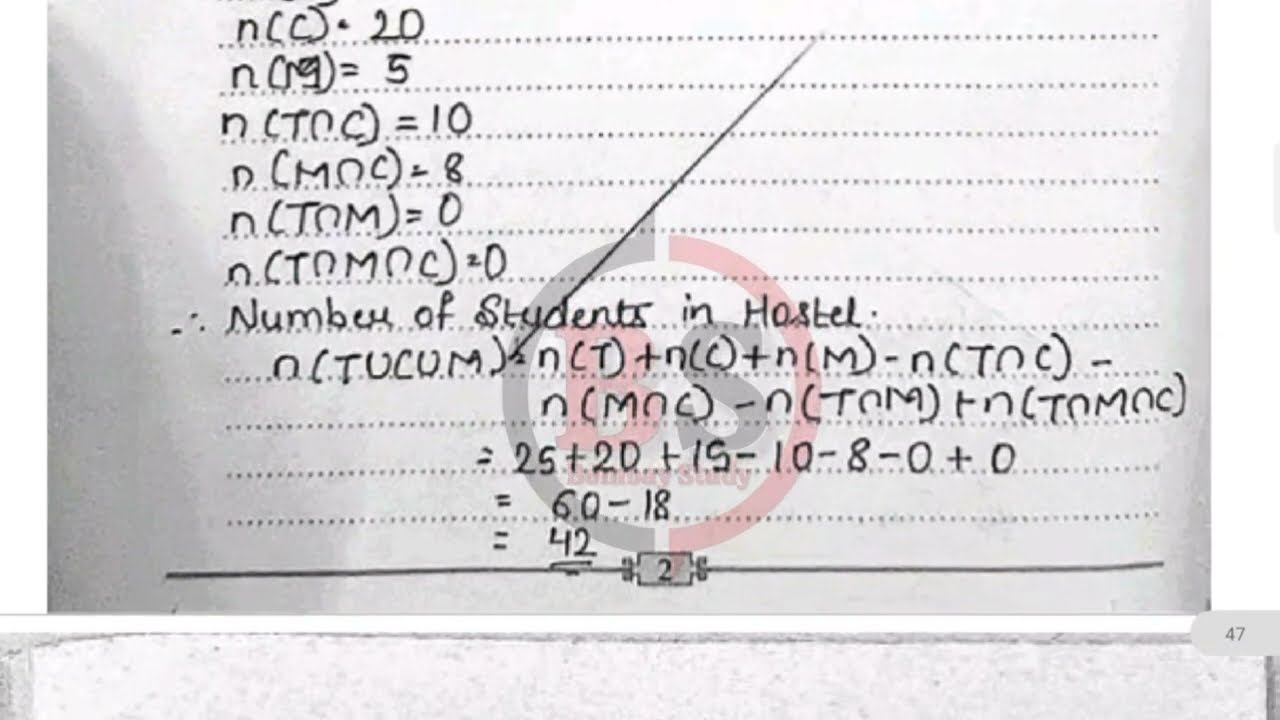 n(C) = 20
n(M) = 5
n(T∩C) = 10
n(M∩C) = 8
n(T∩M) = 0
n(T∩M∩C) = 0
∴ Number of Students in Hostel.
n(TUCUM) = n(T) + n(C) + n(M) - n(T∩C) -
n(M∩C) - n(T∩M) + n(T∩M∩C)
= 25 + 20 + 15 - 10 - 8 - 0 + 0
= 60 - 18
= 42
BS
Bombay Study
2
47